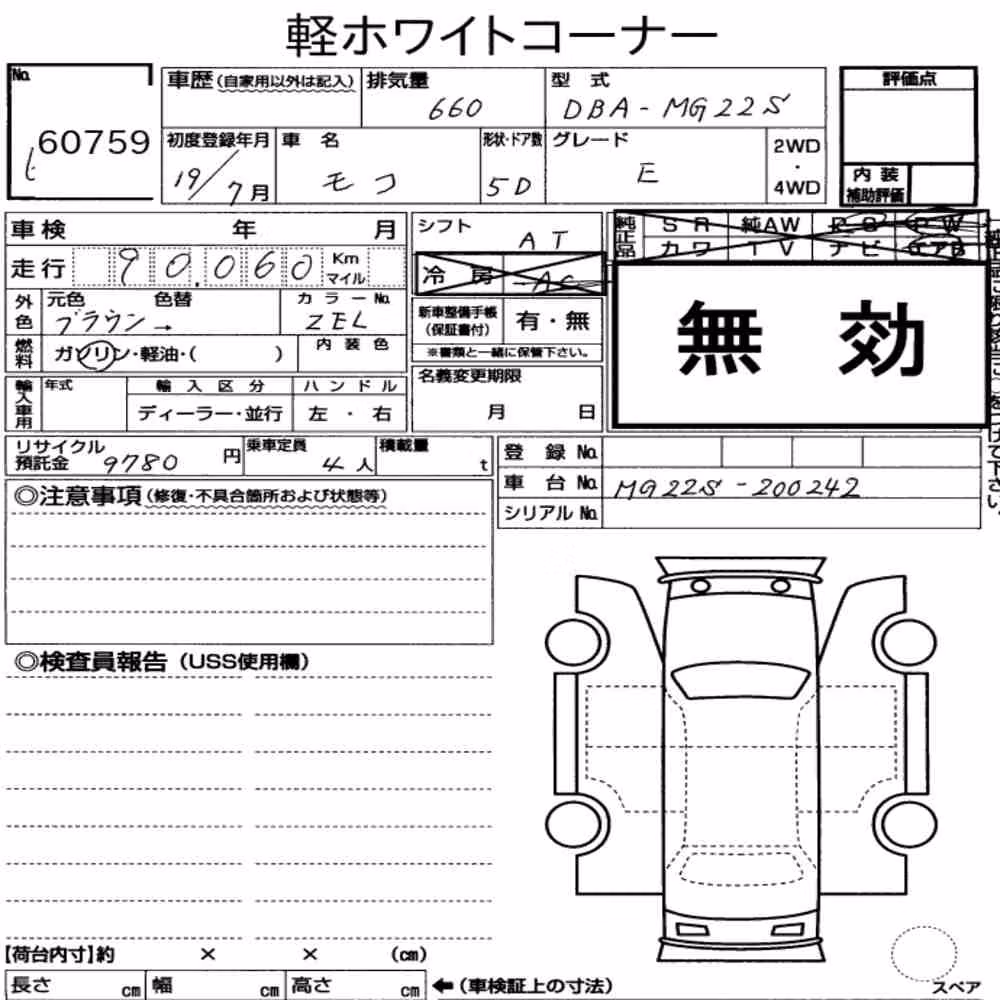 軽ホワイトコーナー
No.
60759
車歴(自家用以外は記入)
排気量
660
型 式
DBA-MG22S
評価点
初度登録年月
19/7月
車 名
モコ
形状・ドア数
5D
グレード
E
2WD
・
4WD
内 装
補助評価
車検 年 月
シフト
AT
純正品
SR 純AW PS PW
カワ TV ナビ エアB
走行 90,060 Km
マイル
冷 房 AC
外色
元色 色替
ブラウン→
カラーNo.
ZEL
新車整備手帳
(保証書付)
有・無
※書類と一緒に保管下さい。
無 効
燃料
ガソリン・軽油・( )
内装色
名義変更期限
月 日
輸入車用
年式
輸 入 区 分
ディーラー・並行
ハ ン ド ル
左 ・ 右
リサイクル
預託金 9780 円
乗車定員
4人
積載量
t
登 録 No.
車 台 No. MG22S-200242
シリアル No.
つけて下さい。
◎注意事項(修復・不具合箇所および状態等)
◎検査員報告(USS使用欄)
【荷台内寸】約 × × (cm)
長さ cm 幅 cm 高さ cm
←(車検証上の寸法)
スペア